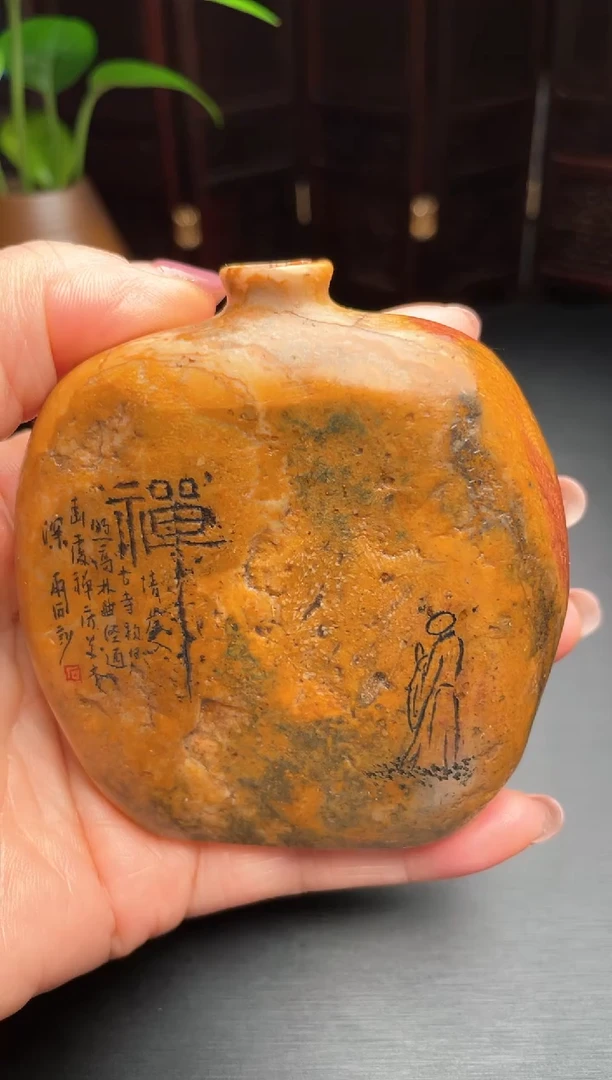 禪
清晨入
古寺初日
照高林曲徑通
幽處禪房花木
深